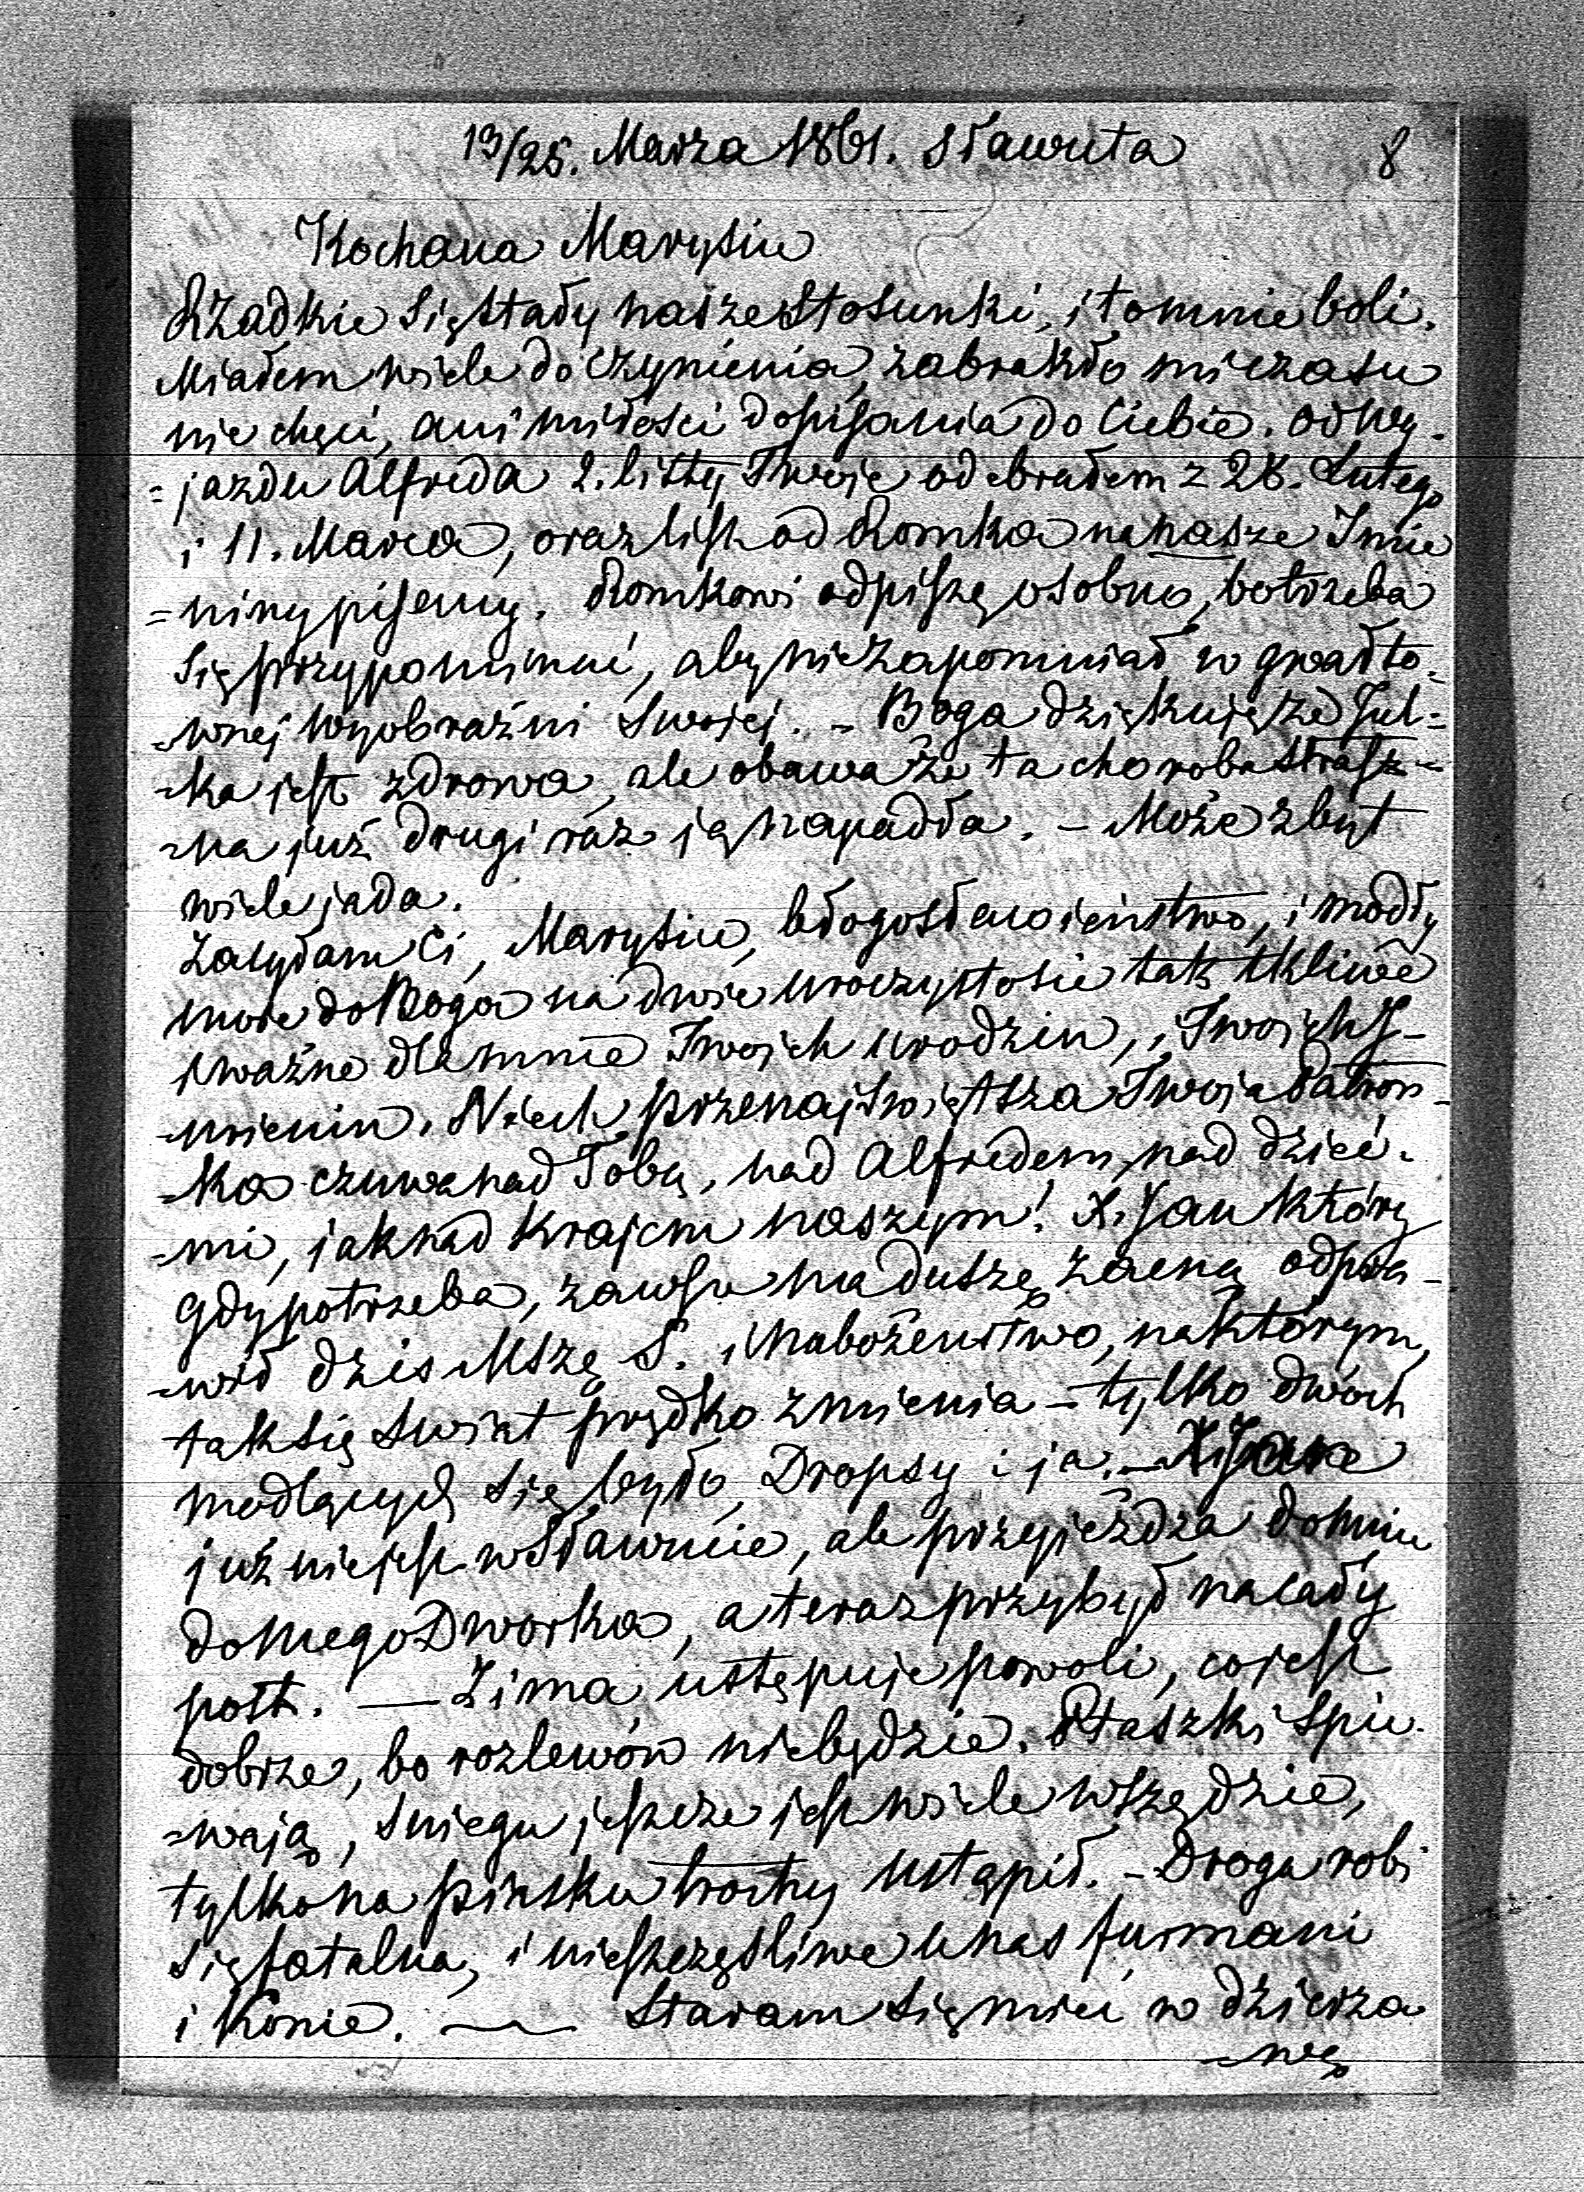 13/25. Marza 1861. Sławuta 8
Kochana Marysiu
Rżadkie się stały nasze stosunki, i to mnie boli.
Miałem wiele do czynienia, zabrakło mi czasu
nie chęci, ani miłości do pisania do Ciebie. Od wy-
=jazdu Alfreda 2. listy Twoje odebrałem z 28. Lutego
i 11. Marca, oraz list od Romka na nasze Imie
=niny pisemy. Romkowi odpiszę osobno, bo trzeba
się przypominać, aby nie zapomniał w gwałto=
=wnej wyobraźni swojej. – Boga dziękuję że Jul=
=ka jest zdrowa, ale obawa że ta choroba strasz=
=na już drugi raz ją napadła. – Może zbyt
wiele jada.
Zasyłam Ci, Marysiu, błogosławieństwo, i modły
moje do Boga na dwie uroczystosie tak tkliwe
i ważne dla mnie Twojch urodzin, i Twojch J-
=mienin. Niech przenajświętsza Twoja Patron-
=ka czuwa nad Tobą, nad Alfredem, nad dzieć-
=mi, jak nad Krajem naszym! X. Jan który
gdy potrzeba, zawsze ma duszę zacną odpra-
=wił dzis Mszę S. i nabożeństwo, na którym,
tak się swiat prędko zmienia – tylko dwóch
modlących się było, Dropsy i ja. – X. Jan
już nie jest w Sławucie, ale przyjeżdza do mnie
do mego Dworka, a teraz przybył na cały
post. — Zima ustępuje powoli, co jest
dobrze, bo rozlewów nie będzie. Ptaszki spie-
=wają, sniegu jeszcze jest wiele wszędzie,
tylko na piasku trochy ustąpił. – Droga robi
się fatalna, i nieszczęśliwe u nas furmani
i Konie. — Staram się mieć w dzierza
=wę